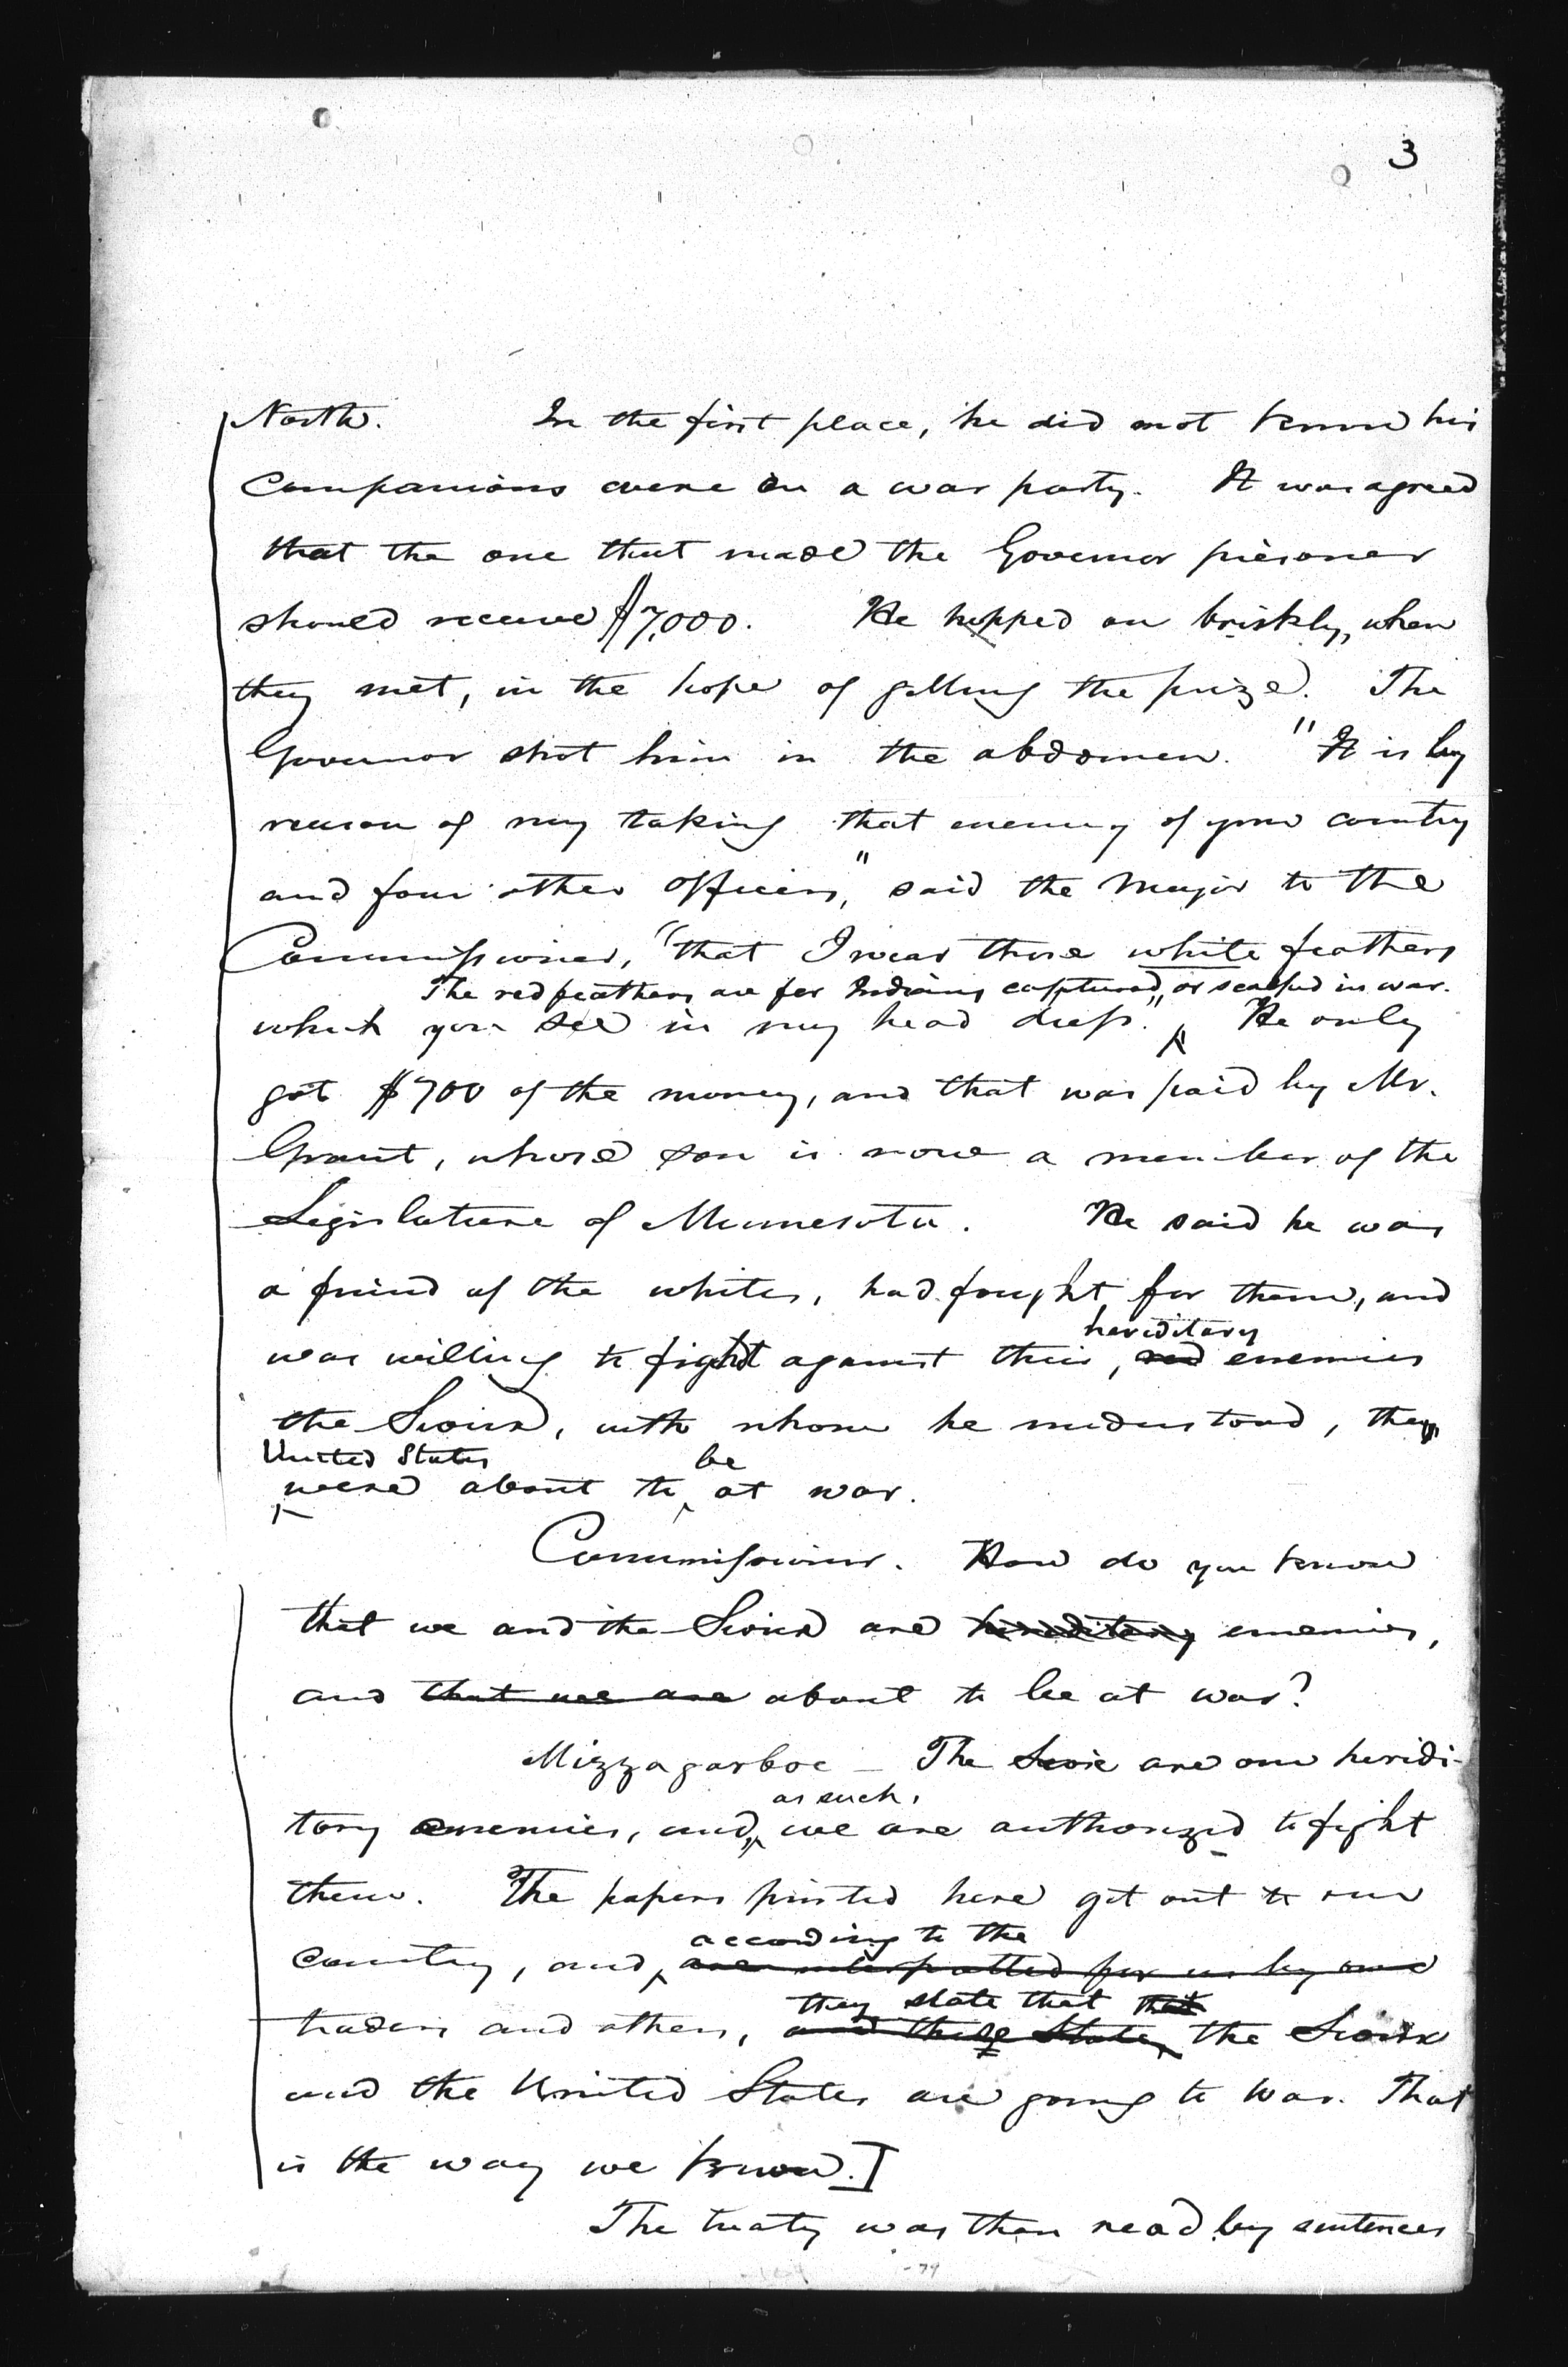 3
North. In the first place, he did not know his
companions were on a war party. It was agreed
that the one that made the Governor prisoner
should receive $7,000. He hopped on briskly, when
they met, in the hope of getting the prize. The
Governor shot him in the abdomen. "It is by
reason of my taking that enemy of your country
and four other officers," said the Major to the
Commissioner, "that I wear those white feathers
The red feathers are for Indians captured, or scalped in war.
which you see in my head dress." He only
got $700 of the money, and that was paid by Mr.
Grant, whose son is now a member of the
Legislature of Minnesota. He said he was
a friend of the whites, had fought for them, and
hereditary
was willing to fight against their, red enemies
the Sioux, with whom he understood, they
United States be
were about to at war.
Commissioner. How do you know
that we and the Sioux are hereditary enemies,
and that we are about to be at war?
Mizzagarboe - The Sioux are our heridi-
as such,
tory enemies, and, we are authorized to fight
them. The papers printed here get out to our
according to the
country, and, are interpretted for us by our
they state that that
traders and others, and these State, the Sioux
and the United States are going to war. That
is the way we know.]
The treaty was then read by sentences